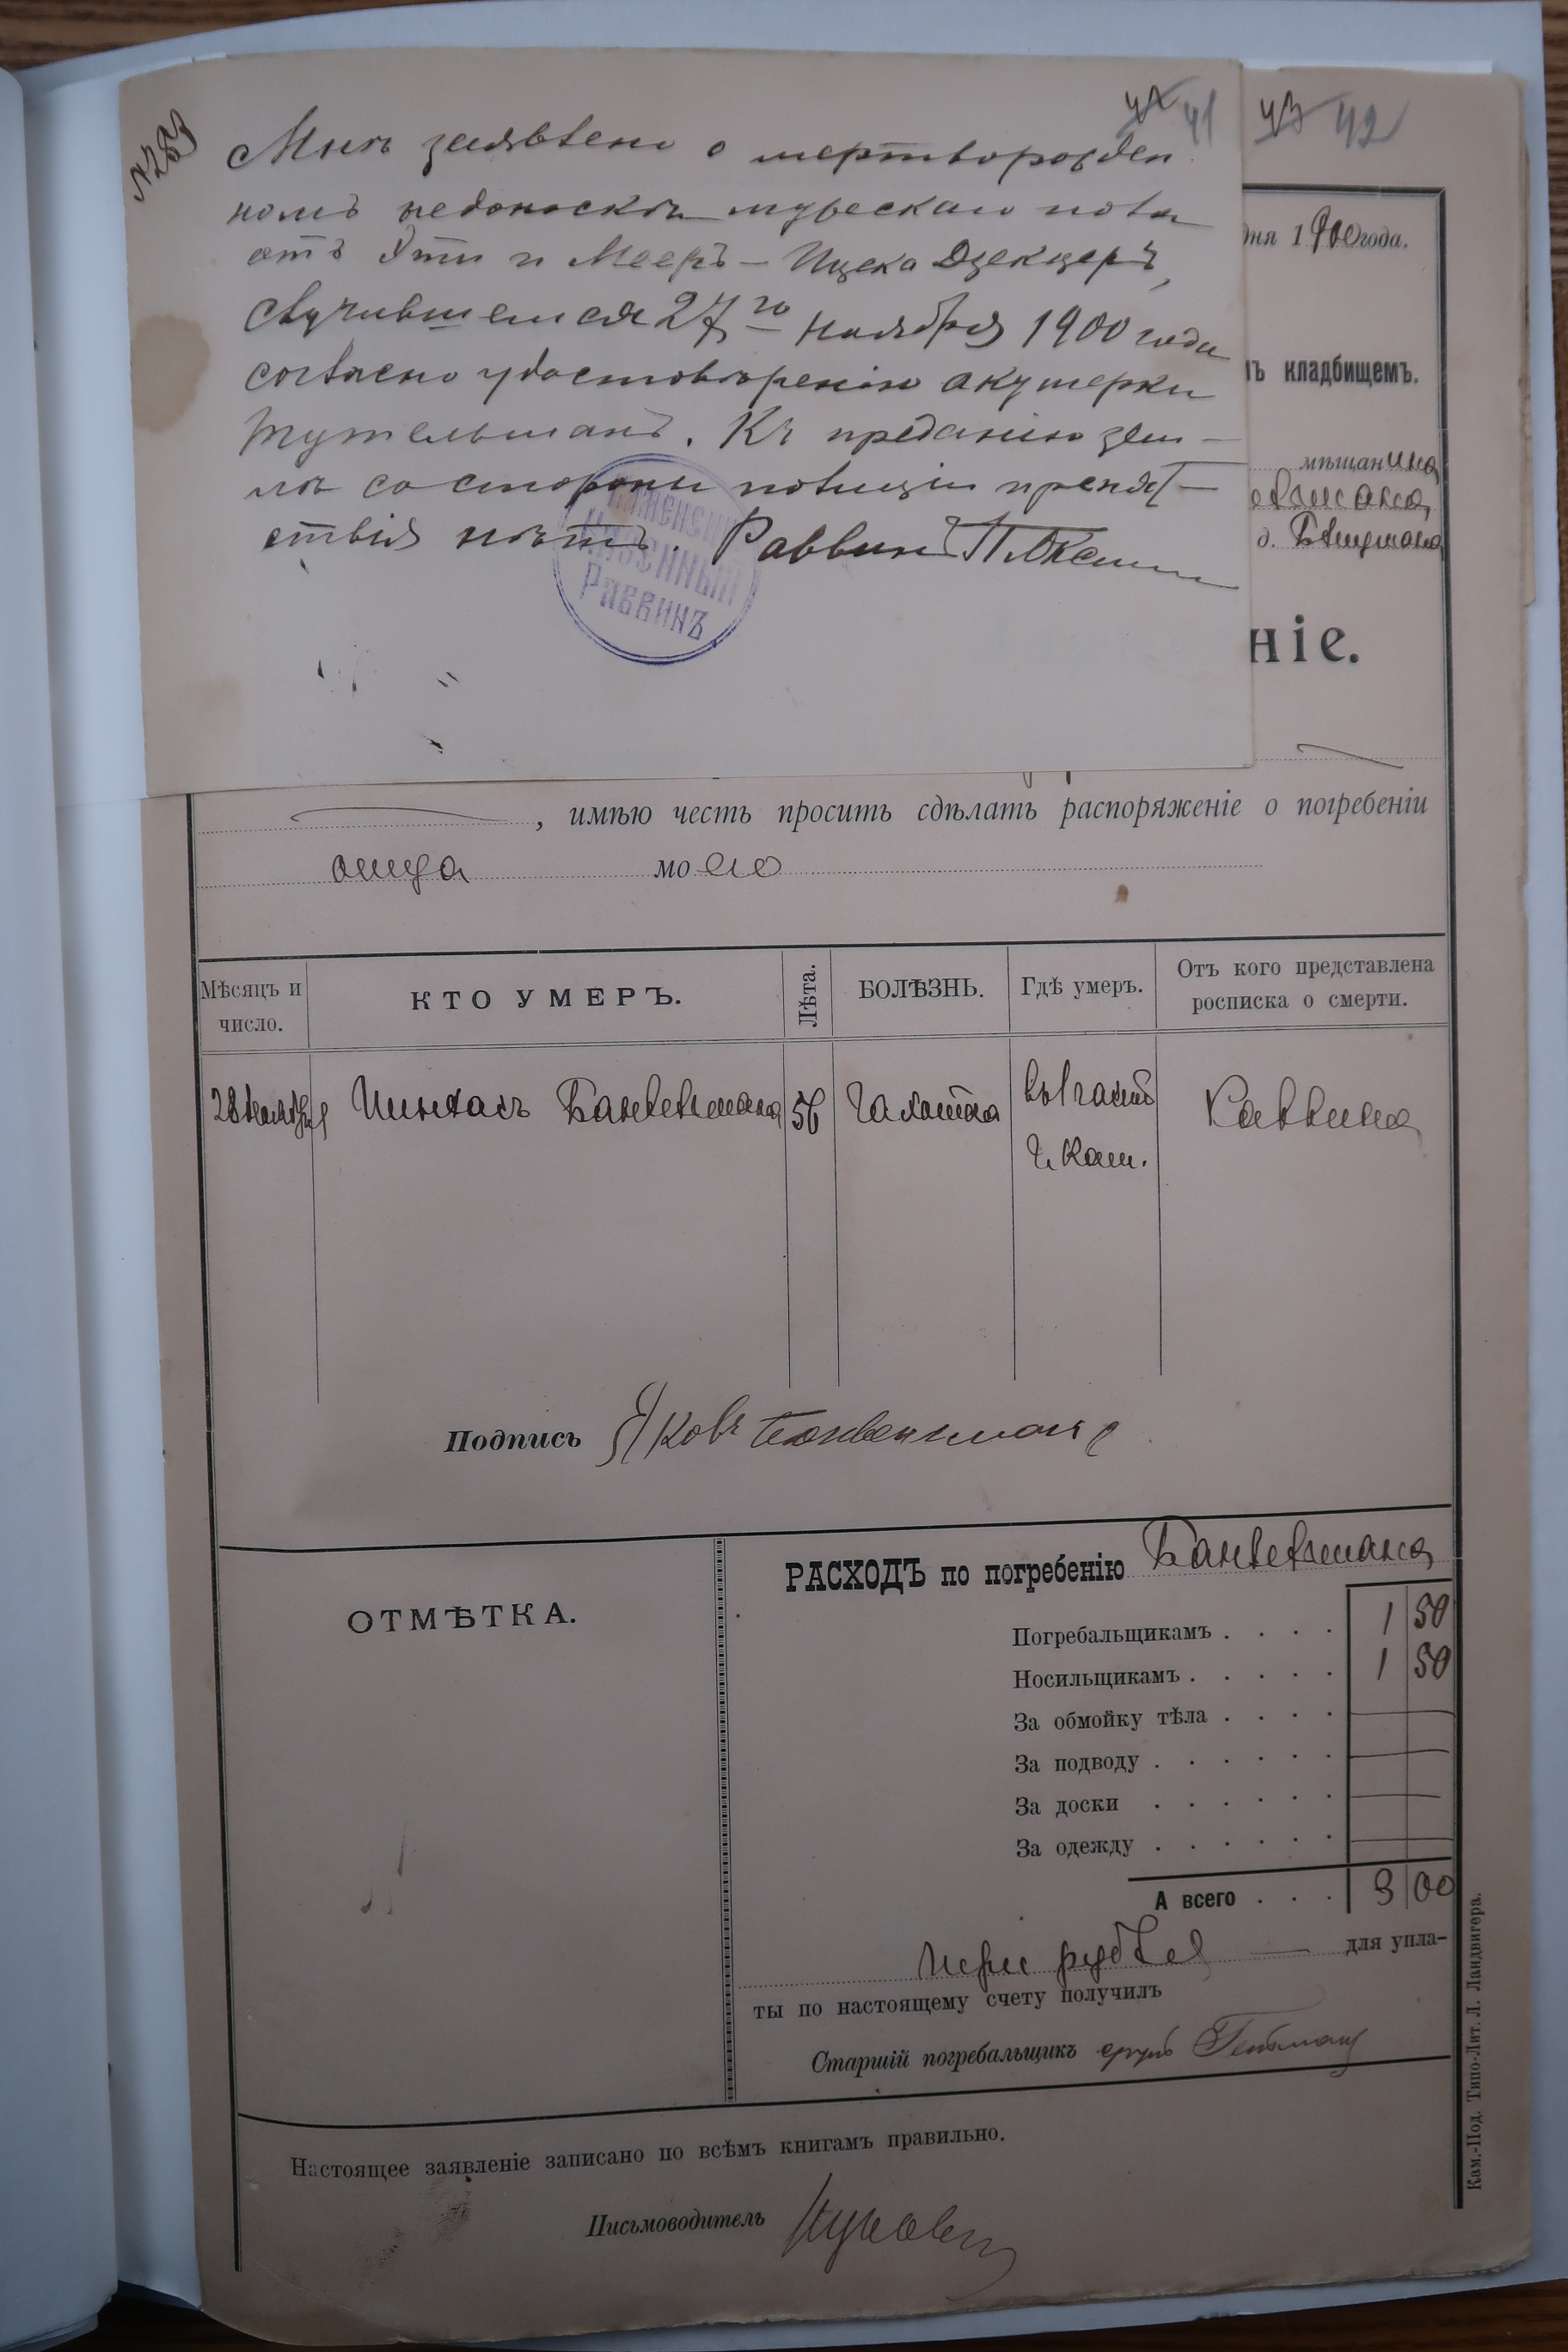 № 289
41
Мнѣ заявлено о мертворожден
номъ недоноскѣ мужескаго пола
отъ Эти и Мееръ-Ицека Дзекцеръ,
случившемся 27го ноября 1900 года
согласно удостовѣренію акушерки
Тутельманъ. Къ преданію зем-
лѣ со стороны полиціи препят-
ствія нѣтъ. Раввинъ
КАЗЕННЫЙ
РАВВИНЪ
42
дня 1900 года.
кладбищемъ.
мѣщанина
д.
ніе.
, имѣю честь просить сдѣлать распоряженіе о погребеніи
отца моего
Мѣсяцъ и число.
КТО УМЕРЪ.
Лѣта.
БОЛѢЗНЬ.
Гдѣ умеръ.
Отъ кого представлена росписка о смерти.
28 Ноября
Пинхасъ Банвельмана
56
Чахотка
въ 1 части
г. Кам.
Раввина
Подпись Яковъ Банвельманъ
ОТМѢТКА.
РАСХОДЪ по погребенію Банвельмана
Погребальщикамъ . . . . 1 50
Носильщикамъ . . . . . 1 50
За обмойку тѣла . . . .
За подводу . . . . . .
За доски . . . . . .
За одежду . . . . . .
А всего . . . 3 00
три рубля для упла-
ты по настоящему счету получилъ
Старшій погребальщикъ
Настоящее заявленіе записано по всѣмъ книгамъ правильно.
Письмоводитель
Кам.-Под. Типо-Лит. Л. Ландвигера.